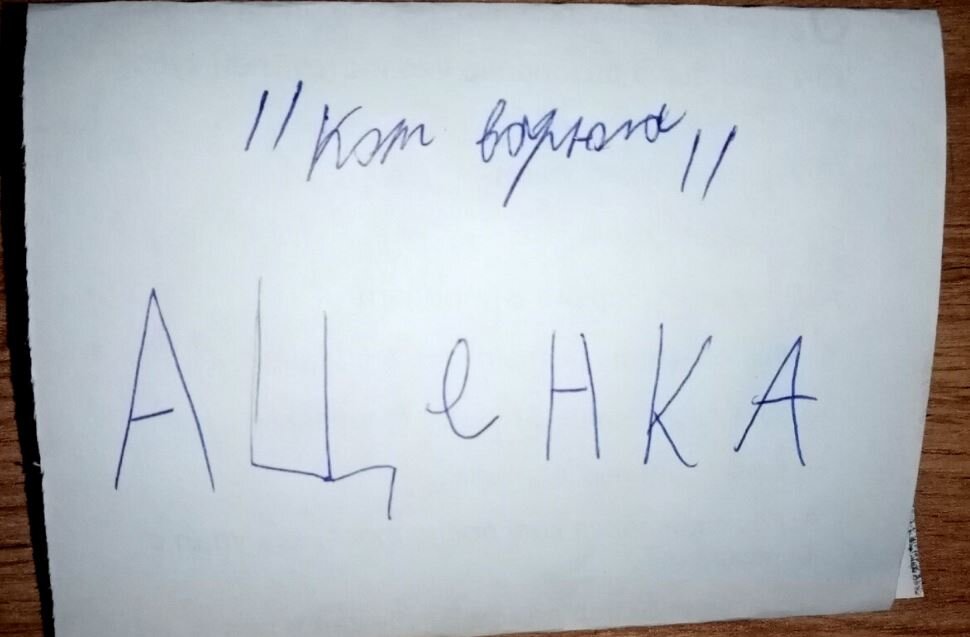 "Кэт ворюга"
АЦеНКА